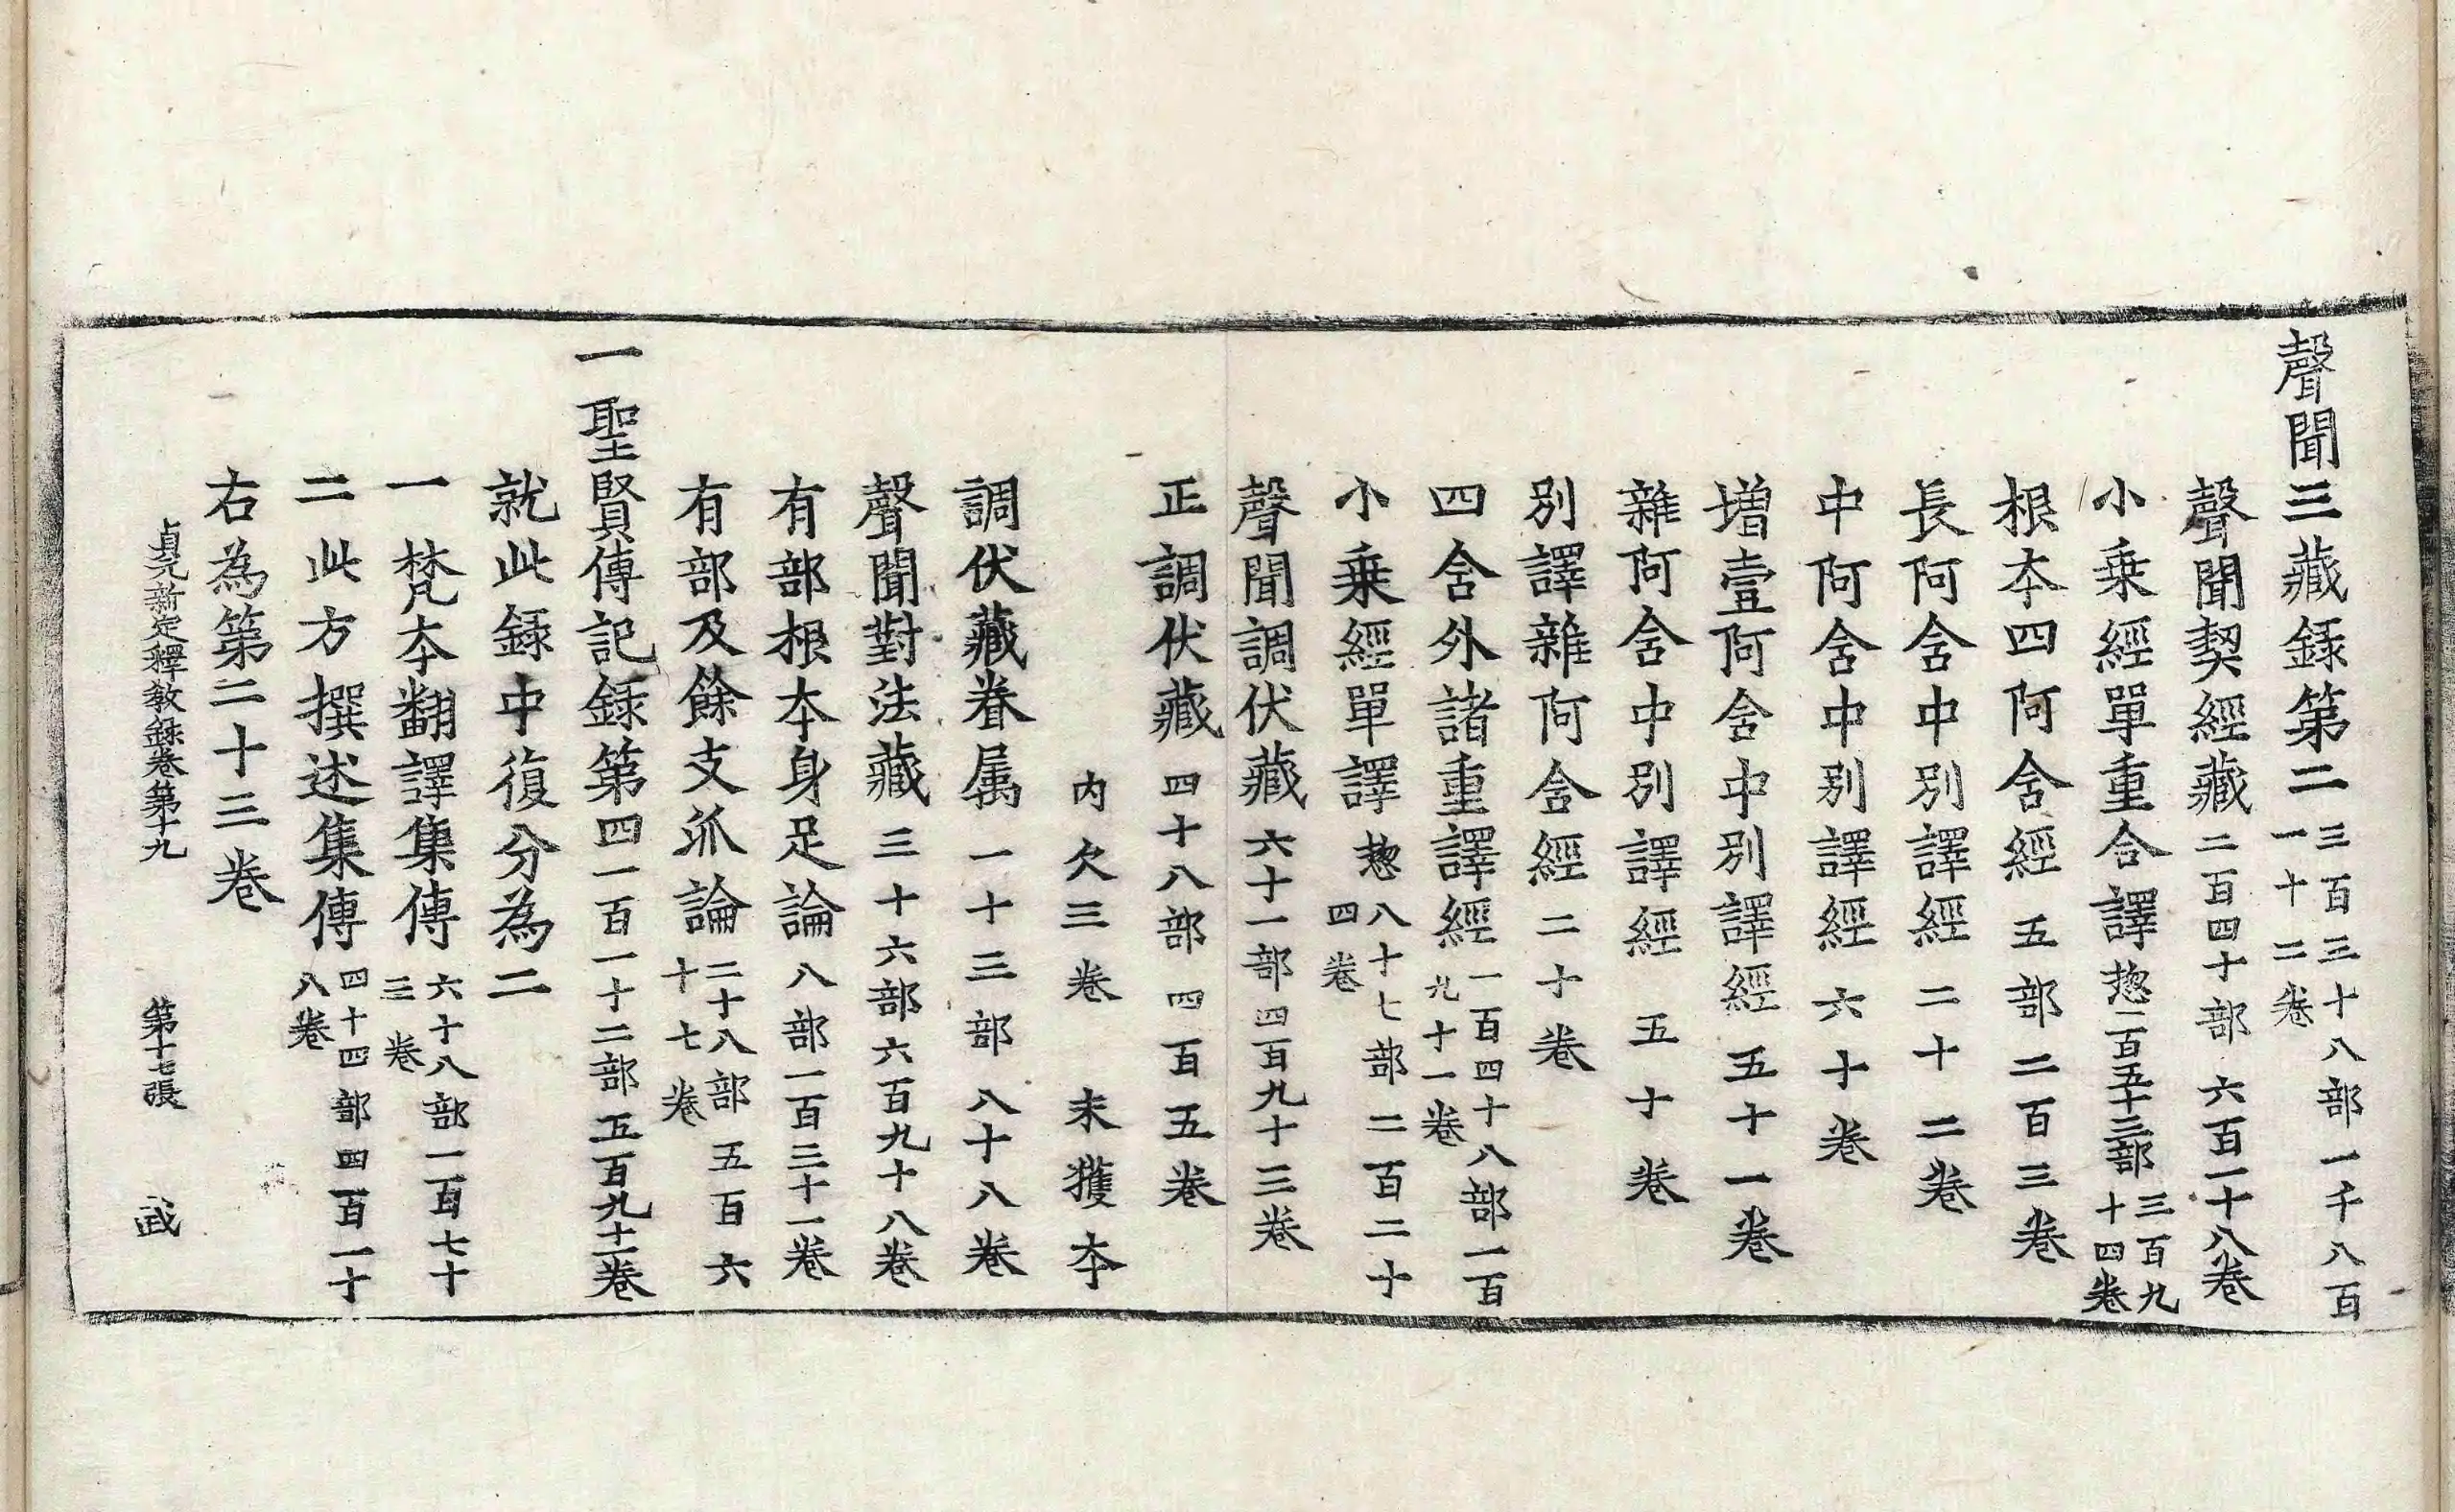 聲聞三藏録第二三百三十八部一千八百一十二卷
聲聞契經藏二百四十部六百一十八卷
小乗經單重合譯惣一百五十三部三百九十四卷
根夲四阿含經五部二百三卷
長阿含中別譯經二十二卷
中阿含中別譯經六十卷
增壹阿含中別譯經五十一卷
雜阿含中別譯經五十卷
別譯雜阿含經二十卷
四含外諸重譯經一百四十八部一百九十一卷
小乗經單譯惣八十七部二百二十四卷
聲聞調伏藏六十一部四百九十三卷
正調伏藏四十八部四百五卷
内欠三卷未獲夲
調伏藏眷属一十三部八十八卷
聲聞對法藏三十六部六百九十八卷
有部根夲身足論八部一百三十一卷
有部及餘支派論二十八部五百六十七卷
一聖賢傳記録第四一百一十二部五百九十一卷
就此録中復分為二
一梵夲翻譯集傳六十八部一百七十三卷
二此方撰述集傳四十四部四百一十八卷
右為第二十三卷
貞元新定釋教録卷第十九 第十七張